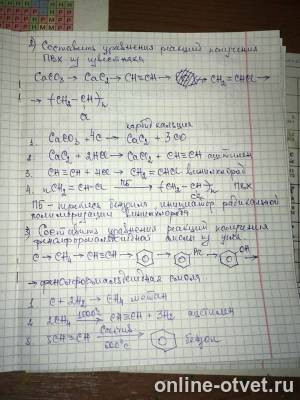 2) Составить уравнения реакций получения
ПВХ из известняка
CaCO₃ → CaC₂ → CH≡CH → → CH₂=CHCl →
→ (-CH₂-CH-)n
Cl
карбид кальция
1. CaCO₃ + 4C → CaC₂ + 3CO
2. CaC₂ + 2HCl → CaCl₂ + CH≡CH ацетилен
3. CH≡CH + HCl → CH₂=CHCl винилхлорид
4. nCH₂=CH-Cl ПБ → (-CH₂-CH-)n ПВХ
Cl
ПБ - перекись бензоила инициатор радикальной
полимеризации винилхлорида
3) Составить уравнения реакций получения
фенолформальдегидной смолы из угля
C → CH₄ → CH≡CH → → →
OH
→ фенолформальдегидная смола
1. C + 2H₂ → CH₄ метан
2. 2CH₄ 1500° → CH≡CH + 3H₂ ацетилен
3. 3CH≡CH 600°C → бензол
online-otvet.ru